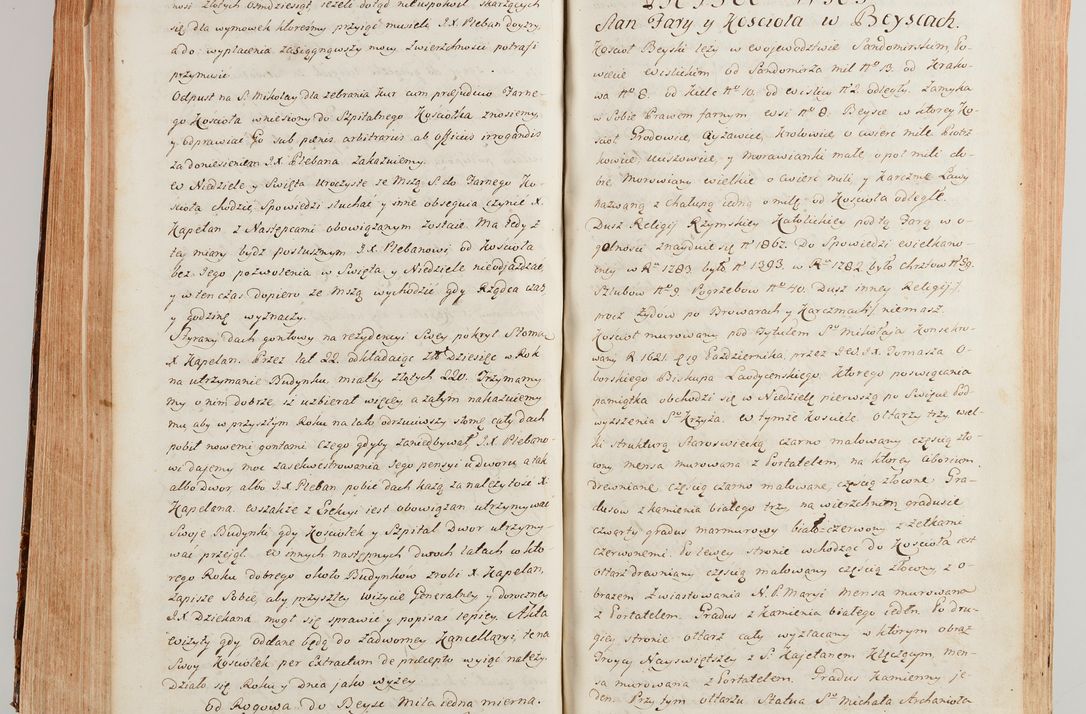 nosi złotych osmdziesiąt, jeżeli dotąd nieupokoił skarzących
się dla wymowek ktoremu przyiąć musieli J.X. Pleban doyrzy,
a do wypłacenia zasiągnąwszy mocy zwierzchności potrafi
przymusić.
Odpust na S. Mikołay dla zebrania Kur cum præjudicio Farne-
go Kościoła wniesiony do Szpitalnego Kościołka znosiemy,
y odprawiać Go sub pœnis arbitrariis ab officio irrogandis
za doniesieniem J.X. Plebana zakazuiemy.
w Niedziele y Święta Uroczyste ze Mszą S. do Farnego Ko-
ścioła chodzić, Spowiedzi słuchać y inne obsequia czynić X.
Kapelan z Następcami obowiązanym zostaie. Ma tedy z
tey miary bydź posłusznym J.X. Plebanowi od Kościoła
bez Jego pozwolenia w Święta y Niedziele nieodjazdzać,
y w ten czas dopiero ze Mszą wychodzić gdy Rządca czas
y godzinę wyznaczy.
Styrany dach gontowy na rezydencyi Swey pokrył Słomą
X Kapelan. Przez lat 22. odkładaiąc Zł. dziesięć w Rok
na utrzymanie Budynku, miałby złotych 220. Trzymamy
my o nim dobrze, iż uzbierał więcey, a zatym nakazuiemy
mu aby w przyszłym Roku na lato odrzuciwszy słomę cały dach
pobił nowemi gontami czego gdyby zaniedbywał J.X. Plebano-
wi dajemy moc zasekwestrowania Jego pensyi u dworu, a tak
albo Dwor, albo J.X. Pleban pobić dach każą za należytość X:
Kapelana. wszakże z Erekcyi iest obowiązan utrzymywać
Swoje Budynki gdy Kościołek y Szpital Dwor utrzymy-
wać przejął. w innych następnych dwoch latach w kto-
rego Roku dobrego około Budynkow zrobi X. Kapelan,
zapisze Sobie, aby przyszłey wizycie Generalney y doroczney
JX Dziekana mogł się sprawić y popisać lepiey. Akta
wizyty gdy oddane będą do zadworney Kancellaryi, te na
Swoy Kościołek per Extractum de præcepto wyiąć należy.
Działo się Roku y Dnia jako wyżey
Od Rogowa do Beysc Mila iedna mierna.
Stan Fary y Kościoła w Beyscach.
Kościoł Beyski leży w wojewodztwie Sandomirskim, Po-
wiecie Wislickim od Sandomirza mil No 13. od Krako-
wa No 8. od Kielc No 10. od Wiślicy No 2. odległy. Zamyka
w Sobie Prawem farnym wsi No 8. Beysce w ktorey Ko-
ścioł Grodowice, Czyżawice, Krolowice, o cwierć mile Piotr-
kowice, Uciszowice, y Morawianki małe, o poł mili do-
brę Morawiany wielkie o cwierć mili, y Karczmę Ławy
nazwaną z Chałupą iedną o milę od Kościoła odległe.
Dusz Religij Rzymskiey Katolickiey pod tą Farą w o-
gulności znayduie się No 1867. Do Spowiedzi wielkano-
cney w Ro 1783 było No 1393. w Ro 1782. było chrztow No 59.
Szlubow No 9. Pogrzebow No 40. Dusz inney Religij /
procz Żydow po Browarach y Karczmach / niemasz.
Kościoł murowany pod Tytułem So Mikołaja Konsekro-
wany R 1621. d 19 Października, przez J.W.J.X. Tomasza O-
borskiego Biskupa Laodyceńskiego. ktorego poswięcania
pamiątka obchodzi się w Niedzielę pierwszą po Święcie Pod-
wyższenia So Krzyża. w tymże Kościele ołtarzy trzy wiel-
ki strukturą Staroswiecką czarno malowany częścią zło-
cony, mensa murowana z Portatelem, na ktorey Ciborium
drewniane, częścią czarno malowane, częścią złocone. Gra-
dusow z kamienia białego trzy, na wierzchnim gradusie
czwarty gradus marmurowy biało=czerwony z żełkami
czerwonemi. Po lewey Stronie wchodząc do Kościoła iest
Ołtarz drewniany częścią malowany częścią złocony z o-
brazem zwiastowania N.P. Maryi mensa murowana
z Portatelem. Gradus z kamienia białego ieden. Po dru-
giey stronie ołtarz cały wyzłacany w ktorym obraz
Troycy Nayświętszey z S. Kajetanem klęczącym, men-
sa murowana z Portatelem. Gradus kamienny je-
den. Przy tym ołtarzu Statua So Michała Archanioła